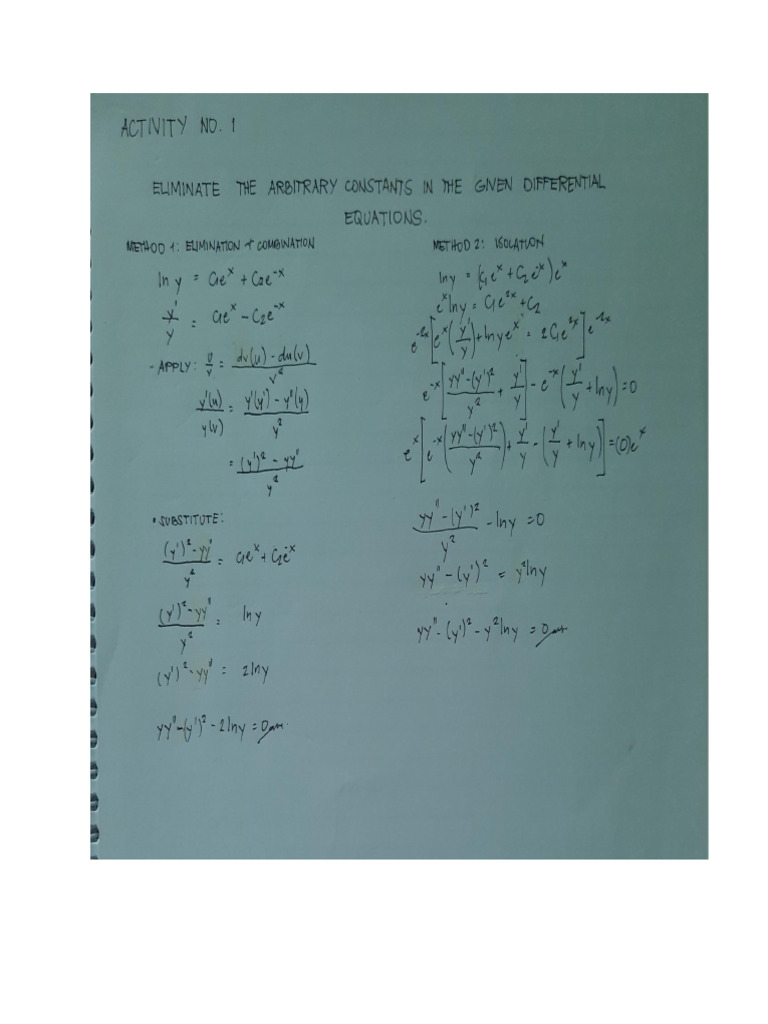 ACTIVITY NO. 1
ELIMINATE THE ARBITRARY CONSTANTS IN THE GIVEN DIFFERENTIAL
EQUATIONS.
METHOD 1: ELIMINATION + COMBINATION
ln y = C₁eˣ + C₂e⁻ˣ
y'/y = C₁eˣ - C₂e⁻ˣ
- APPLY: u/v = (dv(u) - du(v))/v²
y'(u)/y(v) = (y'(y') - y''(y))/y²
= ((y')² - yy'')/y²
• SUBSTITUTE:
((y')² - yy')/y² = C₁eˣ + C₂e⁻ˣ
((y')² - yy'')/y² = ln y
(y')² - yy'' = 2lny
yy'' - (y')² - 2lny = 0
METHOD 2: ISOLATION
ln y = (C₁eˣ + C₂e⁻ˣ)eˣ
eˣlny = C₁e²ˣ + C₂
e⁻²ˣ[eˣ(y'/y) + lnyeˣ = 2C₁e²ˣ]e⁻²ˣ
e⁻ˣ[(yy'' - (y')²)/y² + y'/y] - e⁻ˣ(y'/y + lny) = 0
eˣ[e⁻ˣ((yy'' - (y')²)/y²) + y'/y - (y'/y + lny)] = (0)eˣ
(yy'' - (y')²)/y² - lny = 0
yy'' - (y')² = y²lny
yy'' - (y')² - y²lny = 0